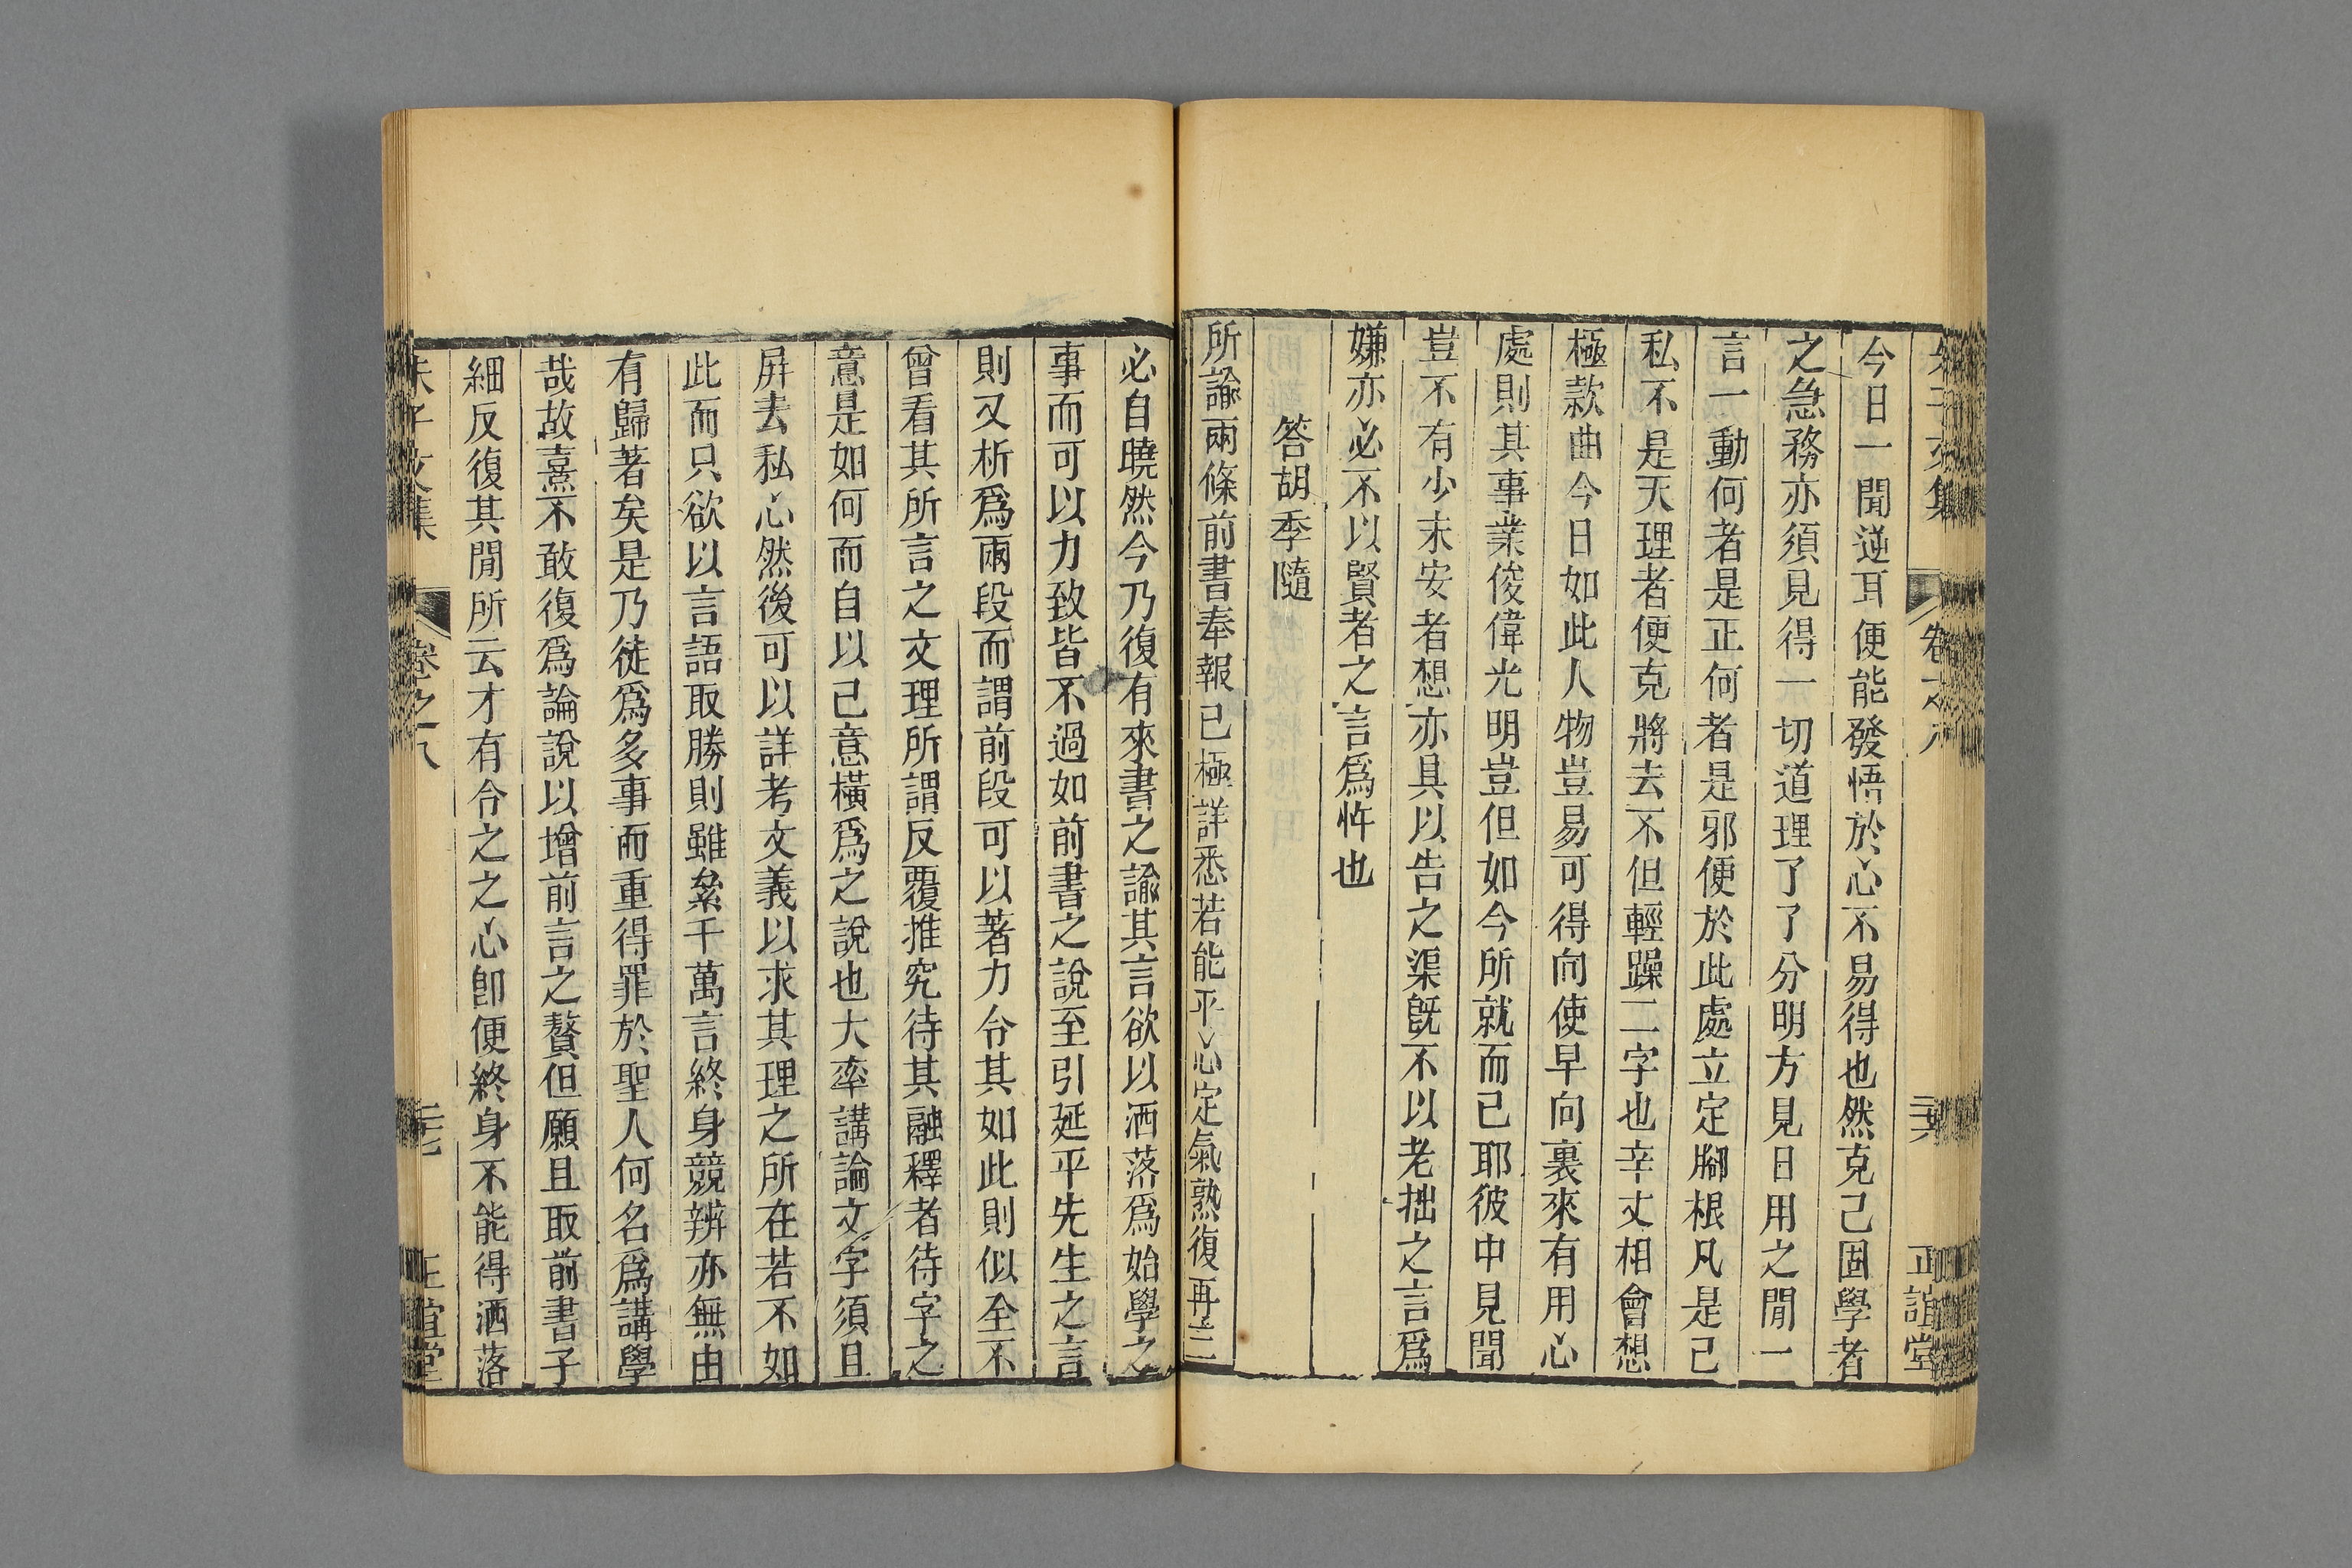 今日一聞逆耳便能發悟於心不易得也然克己固學者
之急務亦須見得一切道理了了分明方見日用之閒一
言一動何者是正何者是邪便於此處立定腳根凡是己
私不是天理者便克將去不但輕躁二字也幸丈相會想
極款曲今日如此人物豈易可得向使早向裏來有用心
處則其事業俊偉光明豈但如今所就而已耶彼中見聞
豈不有少未安者想亦具以告之渠旣不以老拙之言爲
嫌亦必不以賢者之言爲忤也
答胡季隨
所諭兩條前書奉報已極詳悉若能平心定氣熟復再三
必自曉然今乃復有來書之諭其言欲以洒落爲始學之
事而可以力致皆不過如前書之說至引延平先生之言
則又析爲兩段而謂前段可以著力令其如此則似全不
曾看其所言之文理所謂反覆推究待其融釋者待字之
意是如何而自以己意橫爲之說也大率講論文字須且
屏去私心然後可以詳考文義以求其理之所在若不如
此而只欲以言語取勝則雖絫千萬言終身競辨亦無由
有歸著矣是乃徒爲多事而重得罪於聖人何名爲講學
哉故熹不敢復爲論說以增前言之贅但願且取前書子
細反復其閒所云才有令之之心卽便終身不能得洒落
朱子文集
卷之八
正誼堂